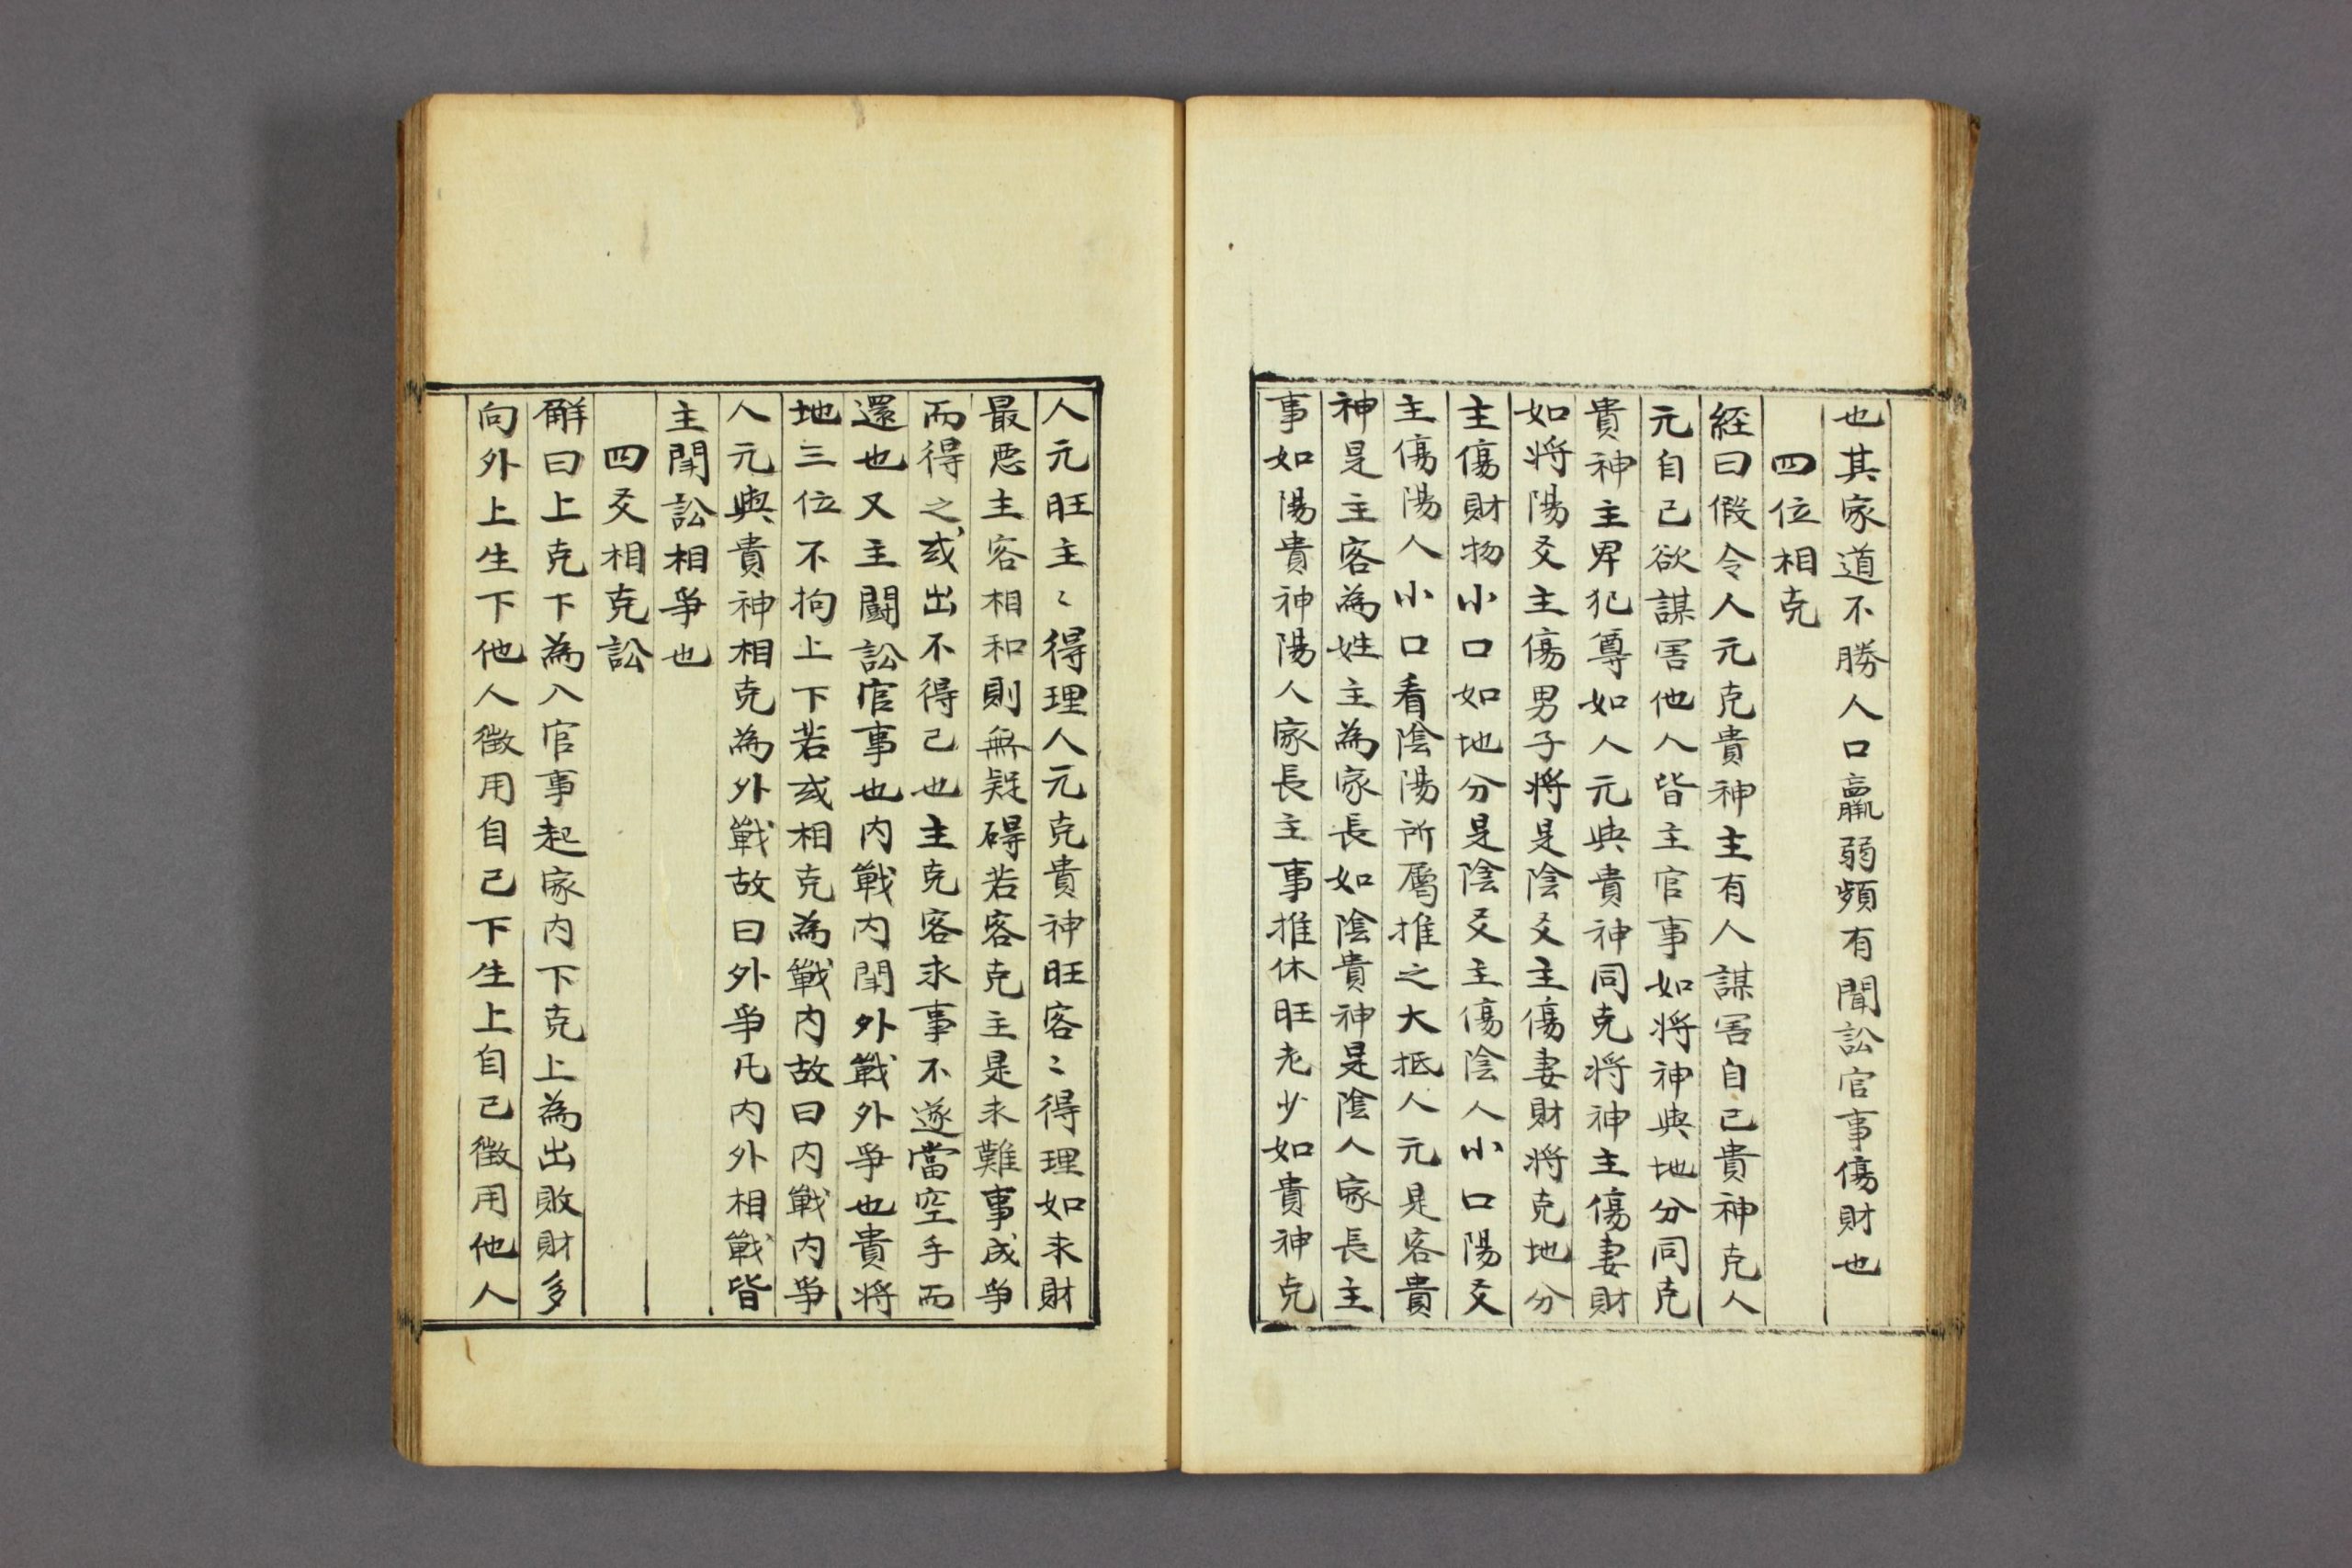 也其家道不勝人口羸弱頻有聞訟官事傷財也
四位相克
経曰假令人元克貴神主有人謀害自己貴神克人
元自己欲謀害他人皆主官事如将神與地分同克
貴神主卑犯尊如人元與貴神同克将神主傷妻財
如将陽爻主傷男子将是陰爻主傷妻財将克地分
主傷財物小口如地分是陰爻主傷陰人小口陽爻
主傷陽人小口看陰陽所屬推之大抵人元是客貴
神是主客為姓主為家長如陰貴神是陰人家長主
事如陽貴神陽人家長主事推休旺老少如貴神克
人元旺主〻得理人元克貴神旺客〻得理如求財
最恶主客相和則無疑碍若客克主是求難事成爭
而得之或出不得己也主克客求事不遂當空手而
還也又主鬪訟官事也内戰内閗外戰外爭也貴将
地三位不拘上下若或相克為戰内故曰内戰内爭
人元與貴神相克為外戰故曰外爭凡内外相戰皆
主閗訟相爭也
四爻相克訟
解曰上克下為入官事起家内下克上為出敗財多
向外上生下他人徴用自己下生上自己徴用他人